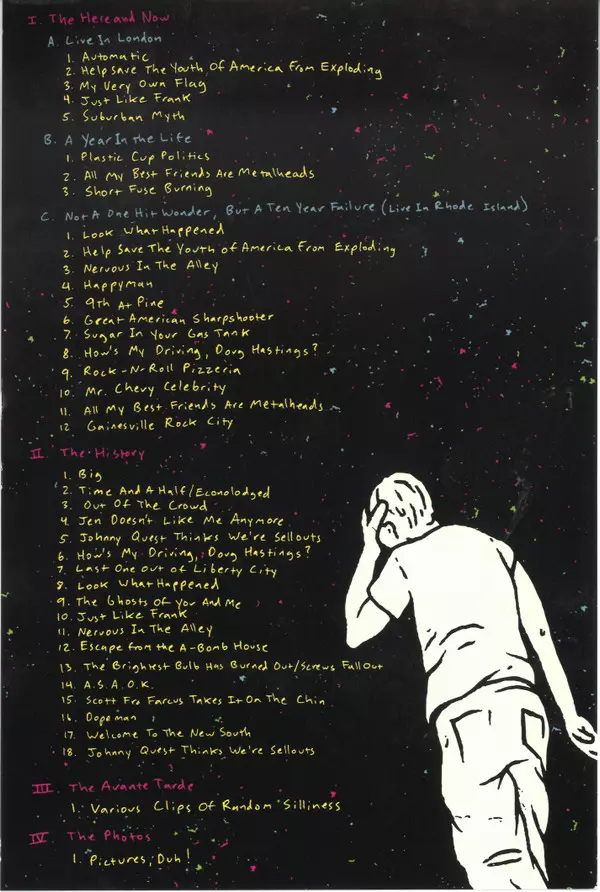 I. The Here and Now
A. Live In London
1. Automatic
2. Help Save The Youth Of America From Exploding
3. My Very Own Flag
4. Just Like Frank
5. Suburban Myth
B. A Year In the Life
1. Plastic Cup Politics
2. All My Best Friends Are Metalheads
3. Short Fuse Burning
C. Not A One Hit Wonder, But A Ten Year Failure (Live In Rhode Island)
1. Look What Happened
2. Help Save The Youth of America From Exploding
3. Nervous In The Alley
4. Happyman
5. 9th At Pine
6. Great American Sharpshooter
7. Sugar In Your Gas Tank
8. How's My Driving, Doug Hastings?
9. Rock-N-Roll Pizzeria
10. Mr. Chevy Celebrity
11. All My Best Friends Are Metalheads
12 Gainesville Rock City
II. The History
1. Big
2. Time And A Half/Econolodged
3. Out Of The Crowd
4. Jen Doesn't Like Me Anymore
5. Johnny Quest Thinks We're Sellouts
6. How's My Driving, Doug Hastings?
7. Last One Out of Liberty City
8. Look What Happened
9. The Ghosts of You And Me
10. Just Like Frank
11. Nervous In The Alley
12. Escape from the A-Bomb House
13. The Brightest Bulb Has Burned Out/Screws Fall Out
14. A.S.A.O.K.
15. Scott Fro Farcus Takes It On The Chin
16. Dopeman
17. Welcome To The New South
18. Johnny Quest Thinks We're Sellouts
III. The Avante Tarde
1. Various Clips Of Random Silliness
IV. The Photos
1. Pictures, Duh!